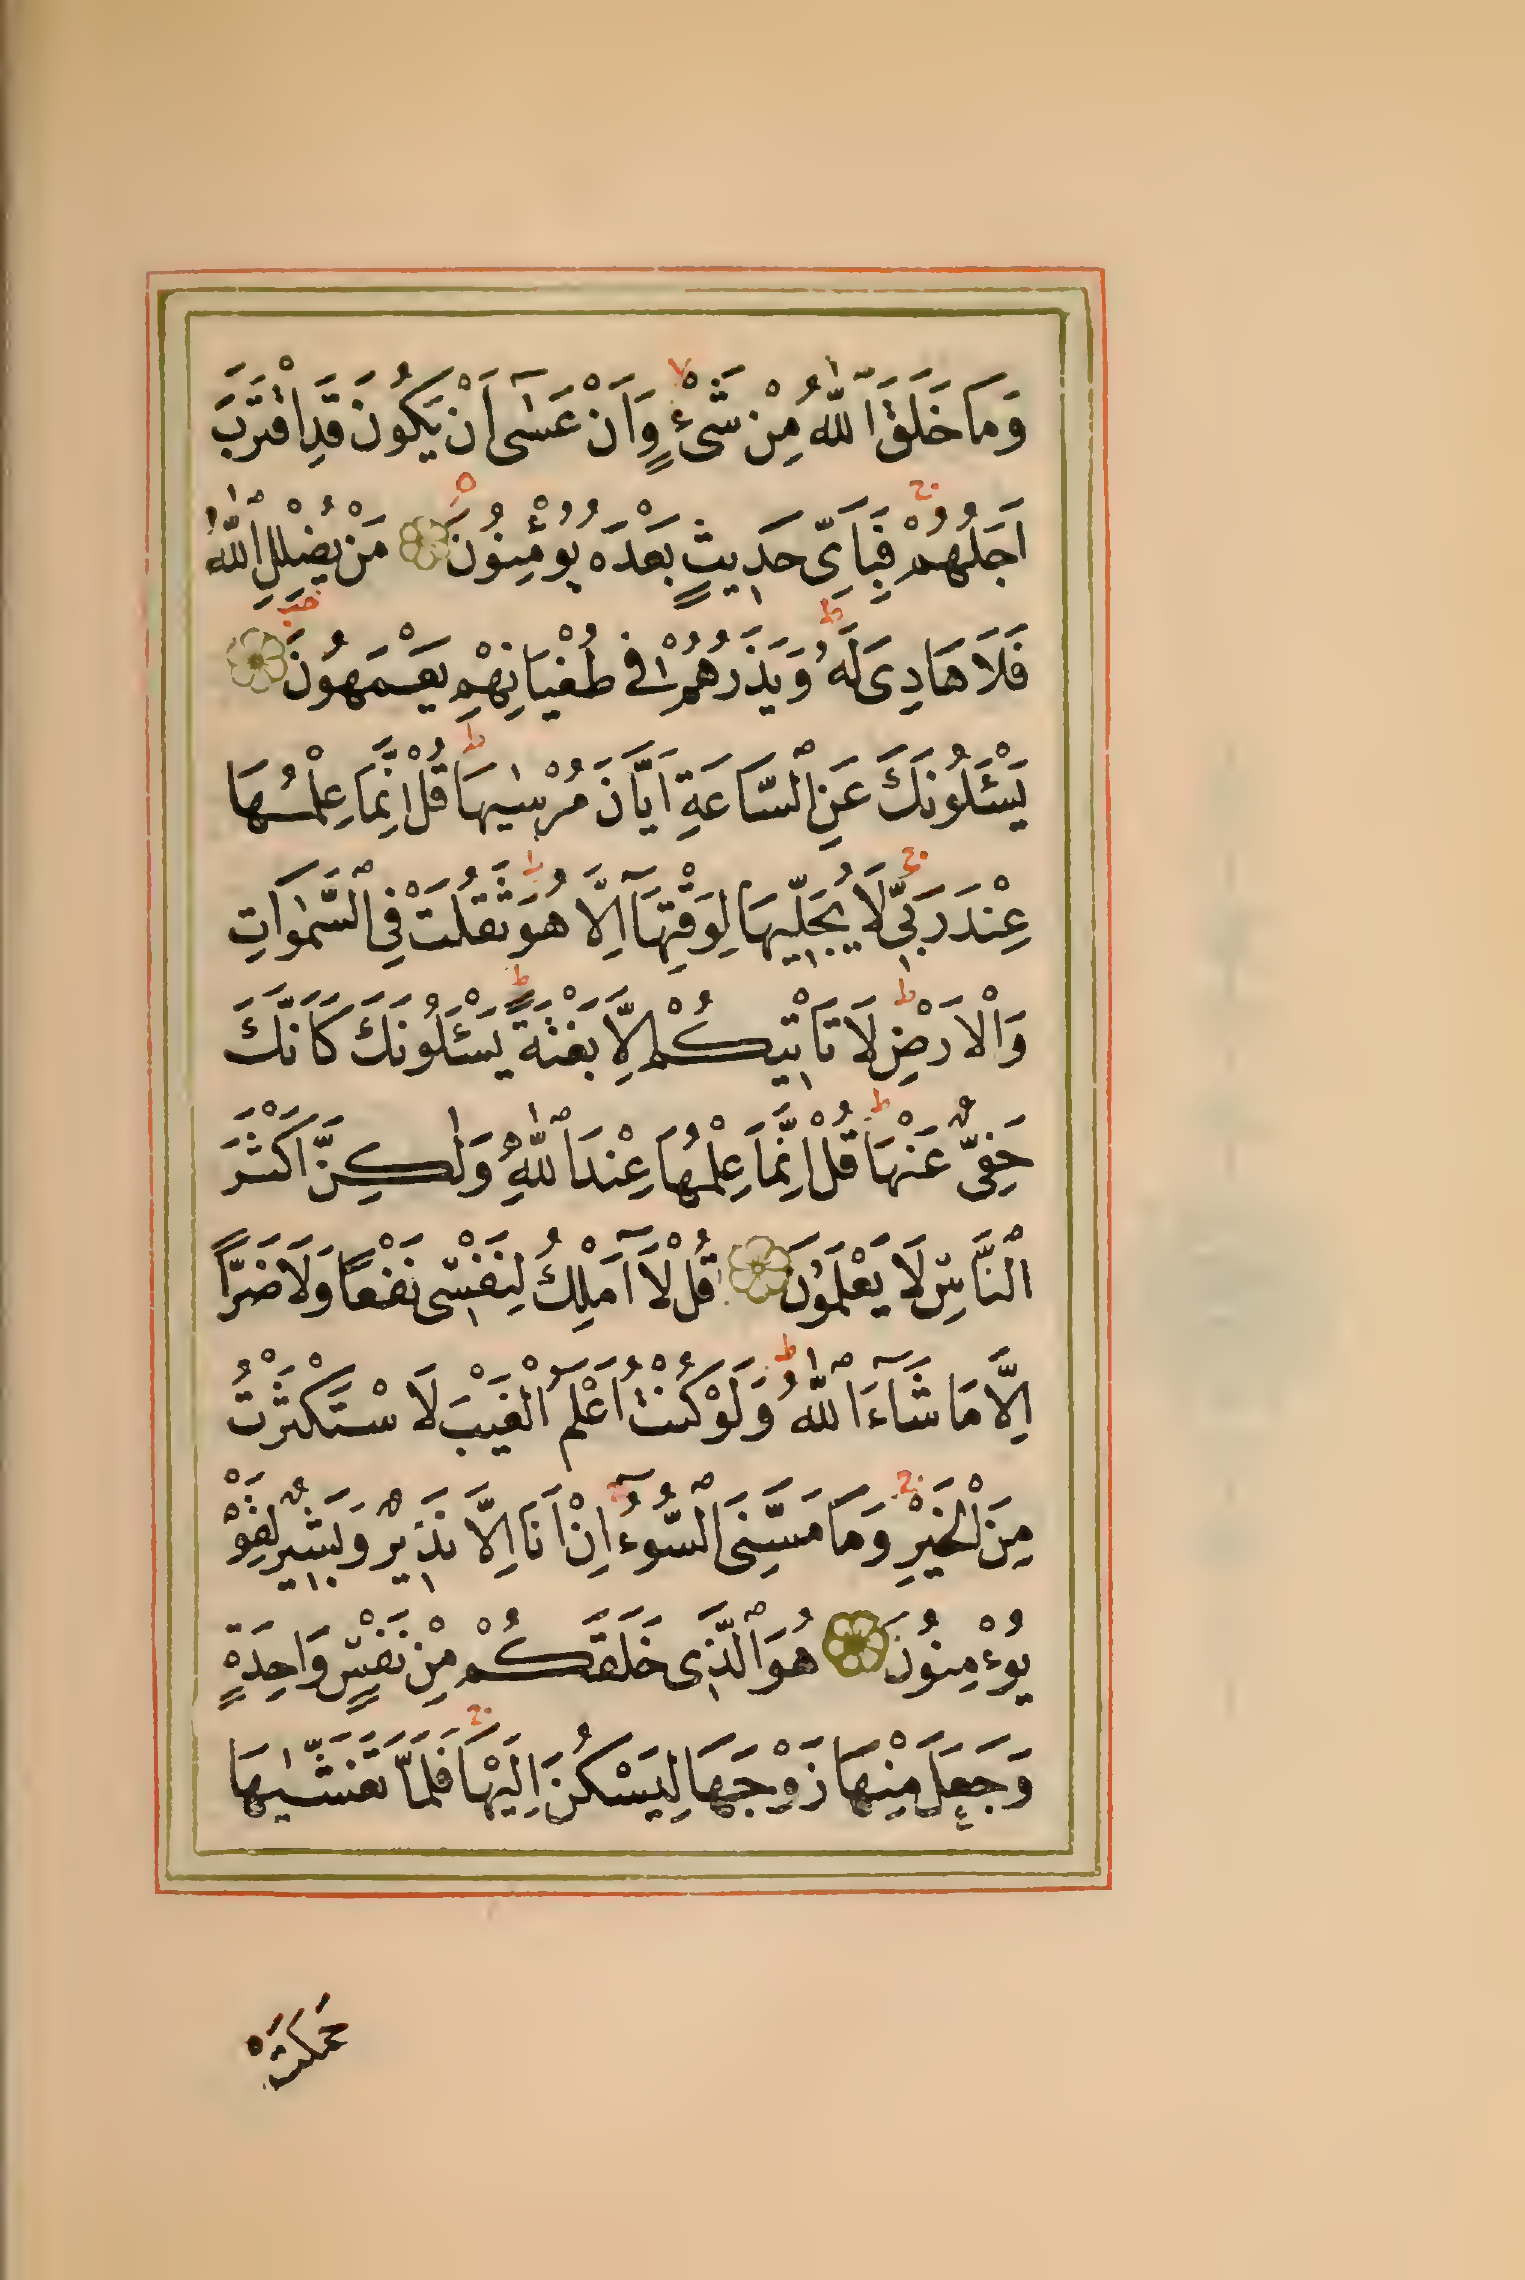 وَمَا خَلَقَ اللّٰهُ مِنْ شَىْءٍ وَاَنْ عَسٰٓى اَنْ يَكُونَ قَدِ اقْتَرَبَ
اَجَلُهُمْ فَبِاَىِّ حَدٖيثٍ بَعْدَهُ يُؤْمِنُونَ مَنْ يُضْلِلِ اللّٰهُ
فَلَا هَادِىَ لَهُ وَيَذَرُهُمْ فٖى طُغْيَانِهِمْ يَعْمَهُونَ
يَسْـَٔلُونَكَ عَنِ السَّاعَةِ اَيَّانَ مُرْسٰيهَا قُلْ اِنَّمَا عِلْمُهَا
عِنْدَ رَبّٖى لَا يُجَلّٖيهَا لِوَقْتِهَٓا اِلَّا هُوَ ثَقُلَتْ فِى السَّمٰوَاتِ
وَالْاَرْضِ لَا تَاْتٖيكُمْ اِلَّا بَغْتَةً يَسْـَٔلُونَكَ كَاَنَّكَ
حَفِىٌّ عَنْهَا قُلْ اِنَّمَا عِلْمُهَا عِنْدَ اللّٰهِ وَلٰكِنَّ اَكْثَرَ
النَّاسِ لَا يَعْلَمُونَ قُلْ لَٓا اَمْلِكُ لِنَفْسٖى نَفْعًا وَلَا ضَرًّا
اِلَّا مَا شَٓاءَ اللّٰهُ وَلَوْ كُنْتُ اَعْلَمُ الْغَيْبَ لَاسْتَكْثَرْتُ
مِنَ الْخَيْرِ وَمَا مَسَّنِىَ السُّٓوءُ اِنْ اَنَا اِلَّا نَذٖيرٌ وَبَشٖيرٌ لِقَوْ
يُوءْمِنُونَ هُوَ الَّذٖى خَلَقَكُمْ مِنْ نَفْسٍ وَاحِدَةٍ
وَجَعَلَ مِنْهَا زَوْجَهَا لِيَسْكُنَ اِلَيْهَا فَلَمَّا تَغَشّٰيهَا
حَمَلَتْ